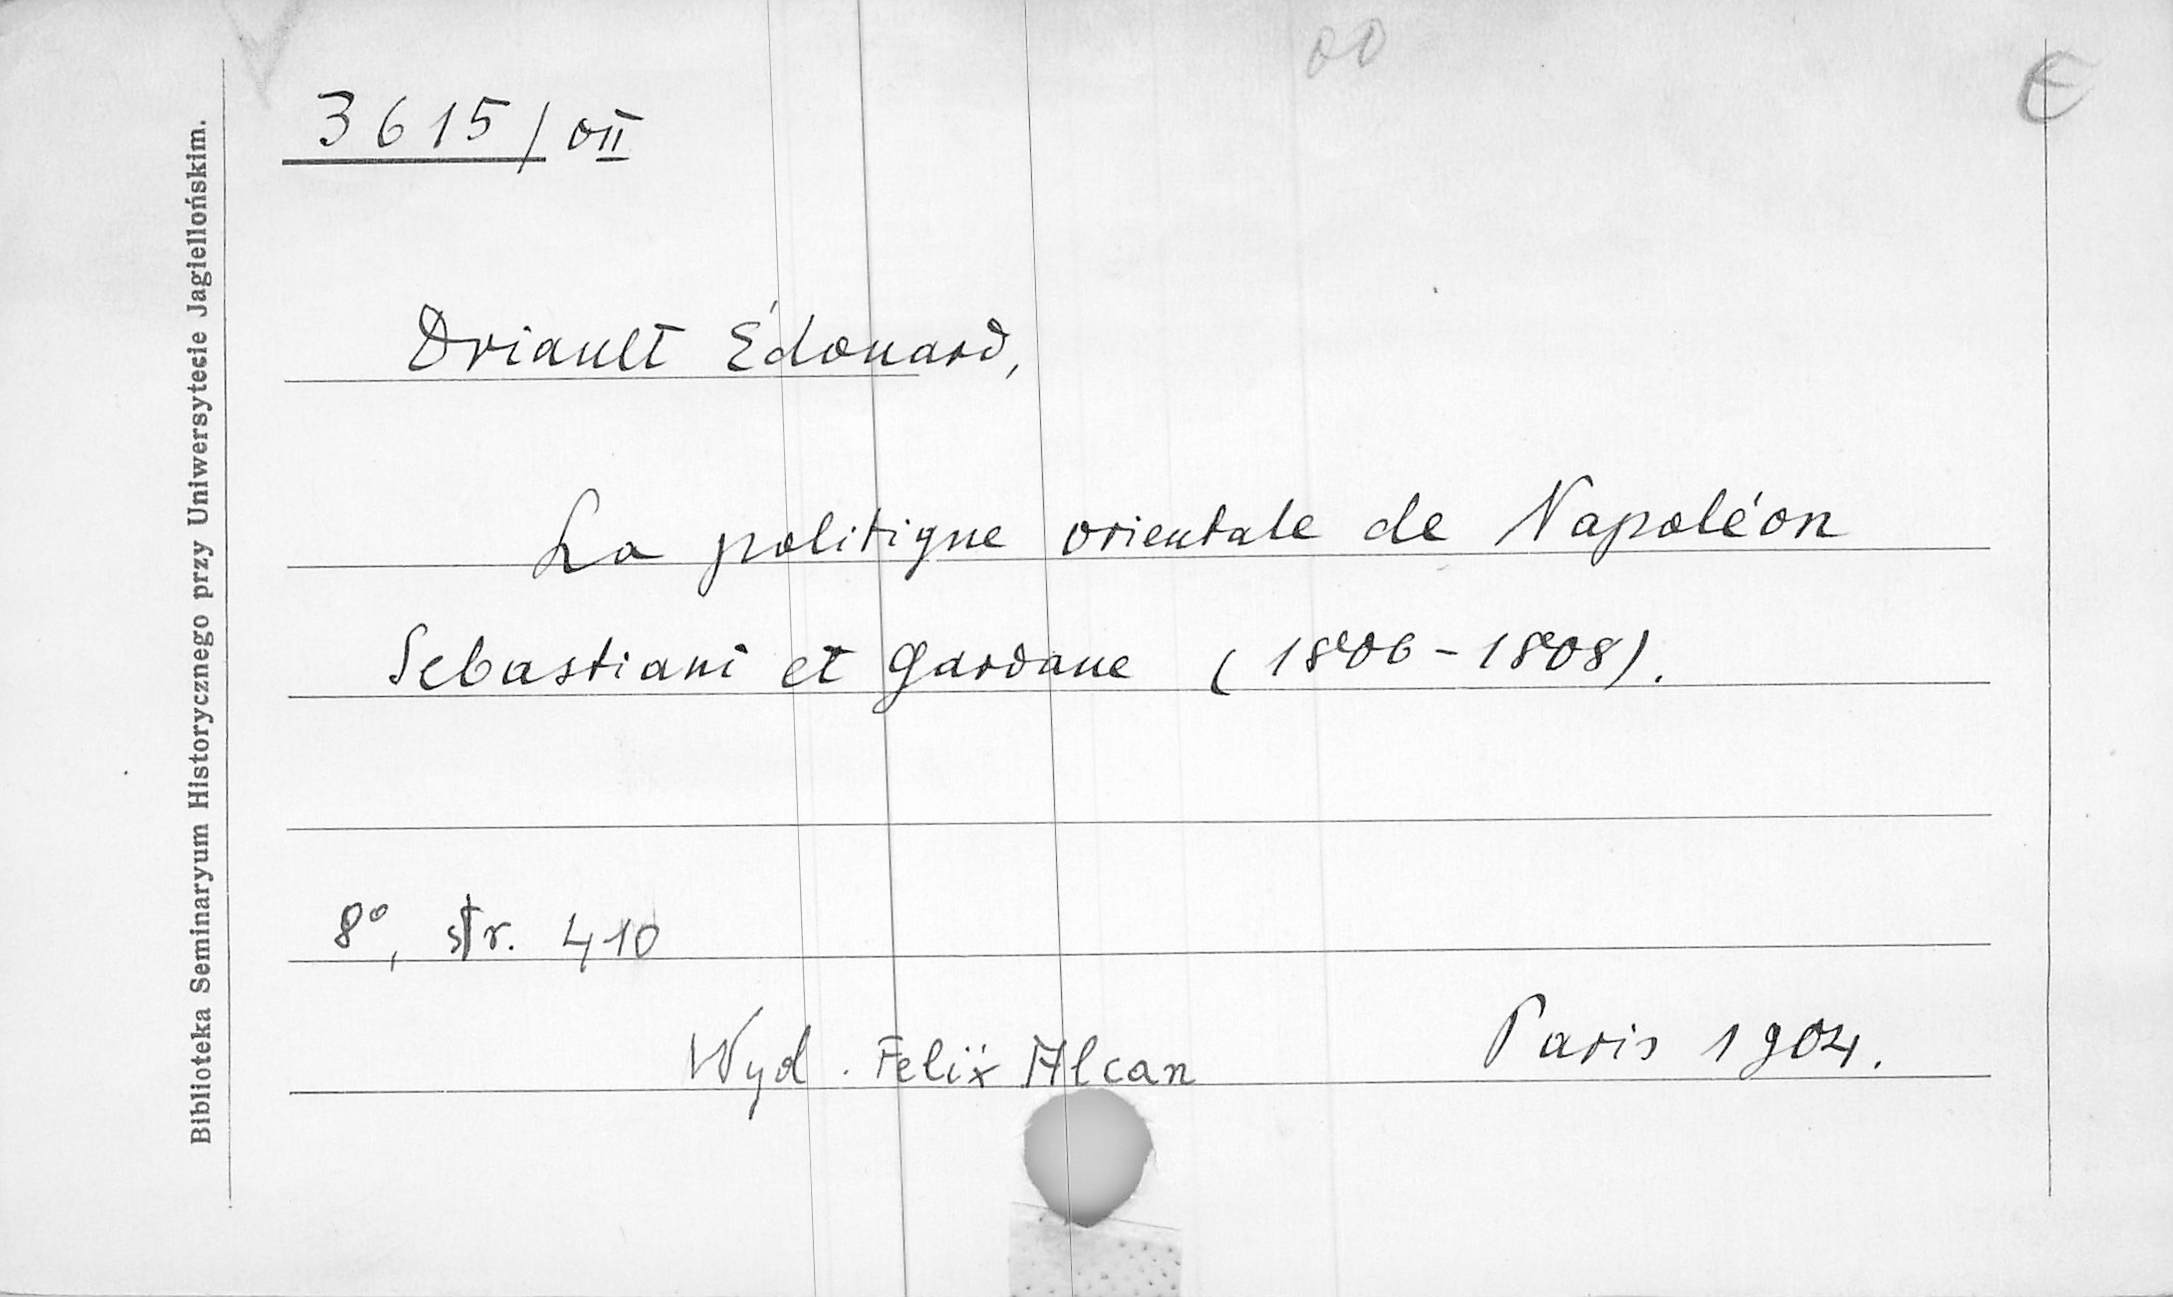 3615/oII
Driault Édouard,
La politique orientale de Napoléon
Sebastiani et Gardane (1806-1808).
8°, str. 410
Wyd. Felix Alcan Paris 1904.
Biblioteka Seminaryum Historycznego przy Uniwersytecie Jagiellońskim.